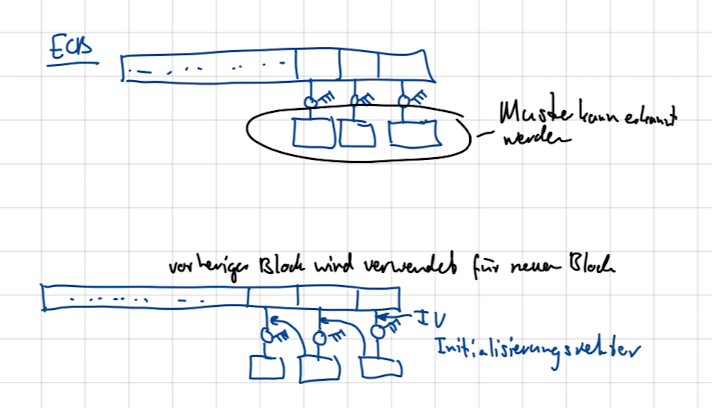 ECB
Muster kann erkannt
werden
vorheriger Block wird verwendet für neuen Block
IV
Initialisierungsvektor